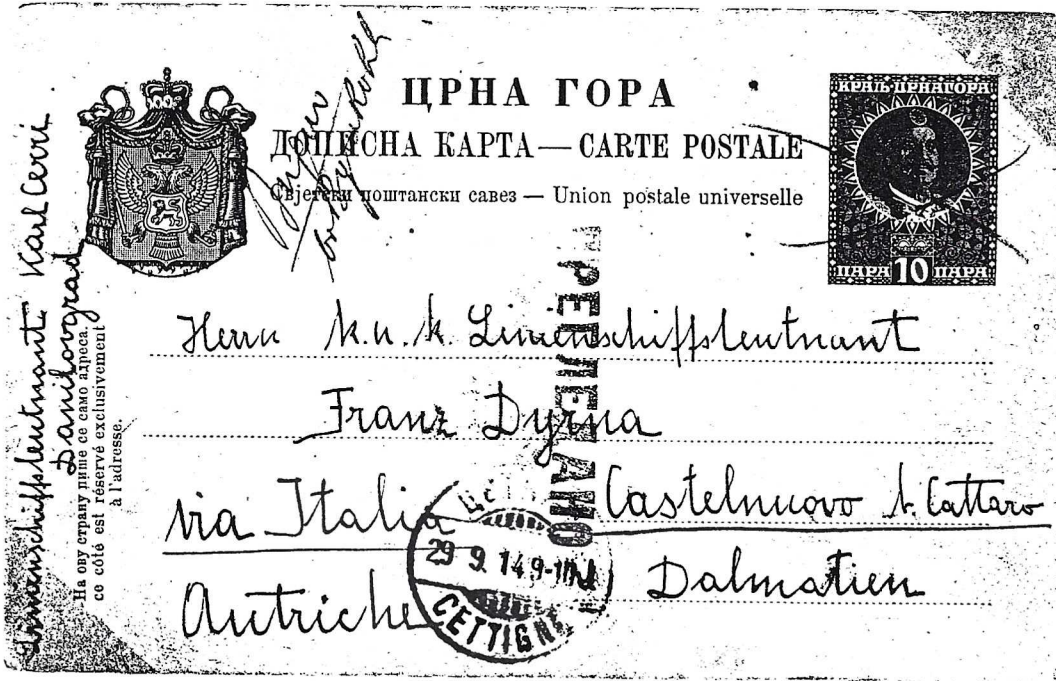 ЦРНА ГОРА
ДОПИСНА КАРТА — CARTE POSTALE
Свјетски поштански савез — Union postale universelle
КРАЉ·ЦРНАГОРА
ПАРА 10 ПАРА
Linienschiffsleutnant Karl Cerri
Danilovgrad
На ову страну пише се само адреса.
ce côté est réservé exclusivement
à l'adresse.
Herrn k. u. k. Linienschiffsleutnant
Franz Dyrna
via Italia Castelnuovo b. Cattaro
Autriche Dalmatien
ПРЕГЛЕДАНО
29 9. 14 9-
CETTIGNE